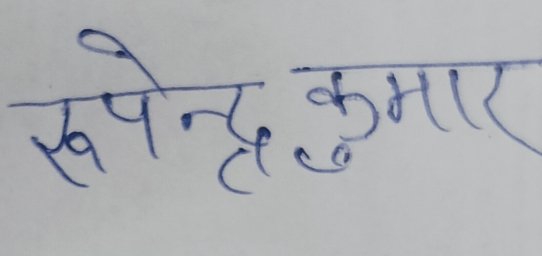 रूपेन्द्र कुमार